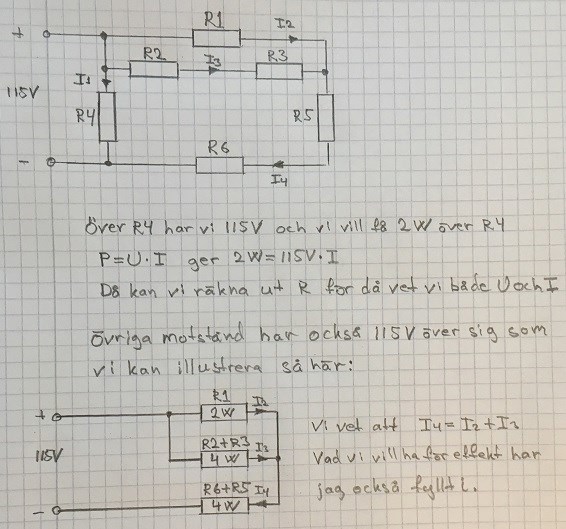 R1
I2
+
R2
I3
R3
I1
115V
R4
R5
R6
-
I4
Över R4 har vi 115V och vi vill få 2W över R4
P=U·I ger 2W=115V·I
Då kan vi räkna ut R för då vet vi både U och I
Övriga motstånd har också 115V över sig som
vi kan illustrera så här:
R1
I2
+
2W
Vi vet att I4=I2+I3
R2+R3
I3
115V
4W
Vad vi vill ha för effekt har
R6+R5
I4
jag också fyllt i.
-
4W